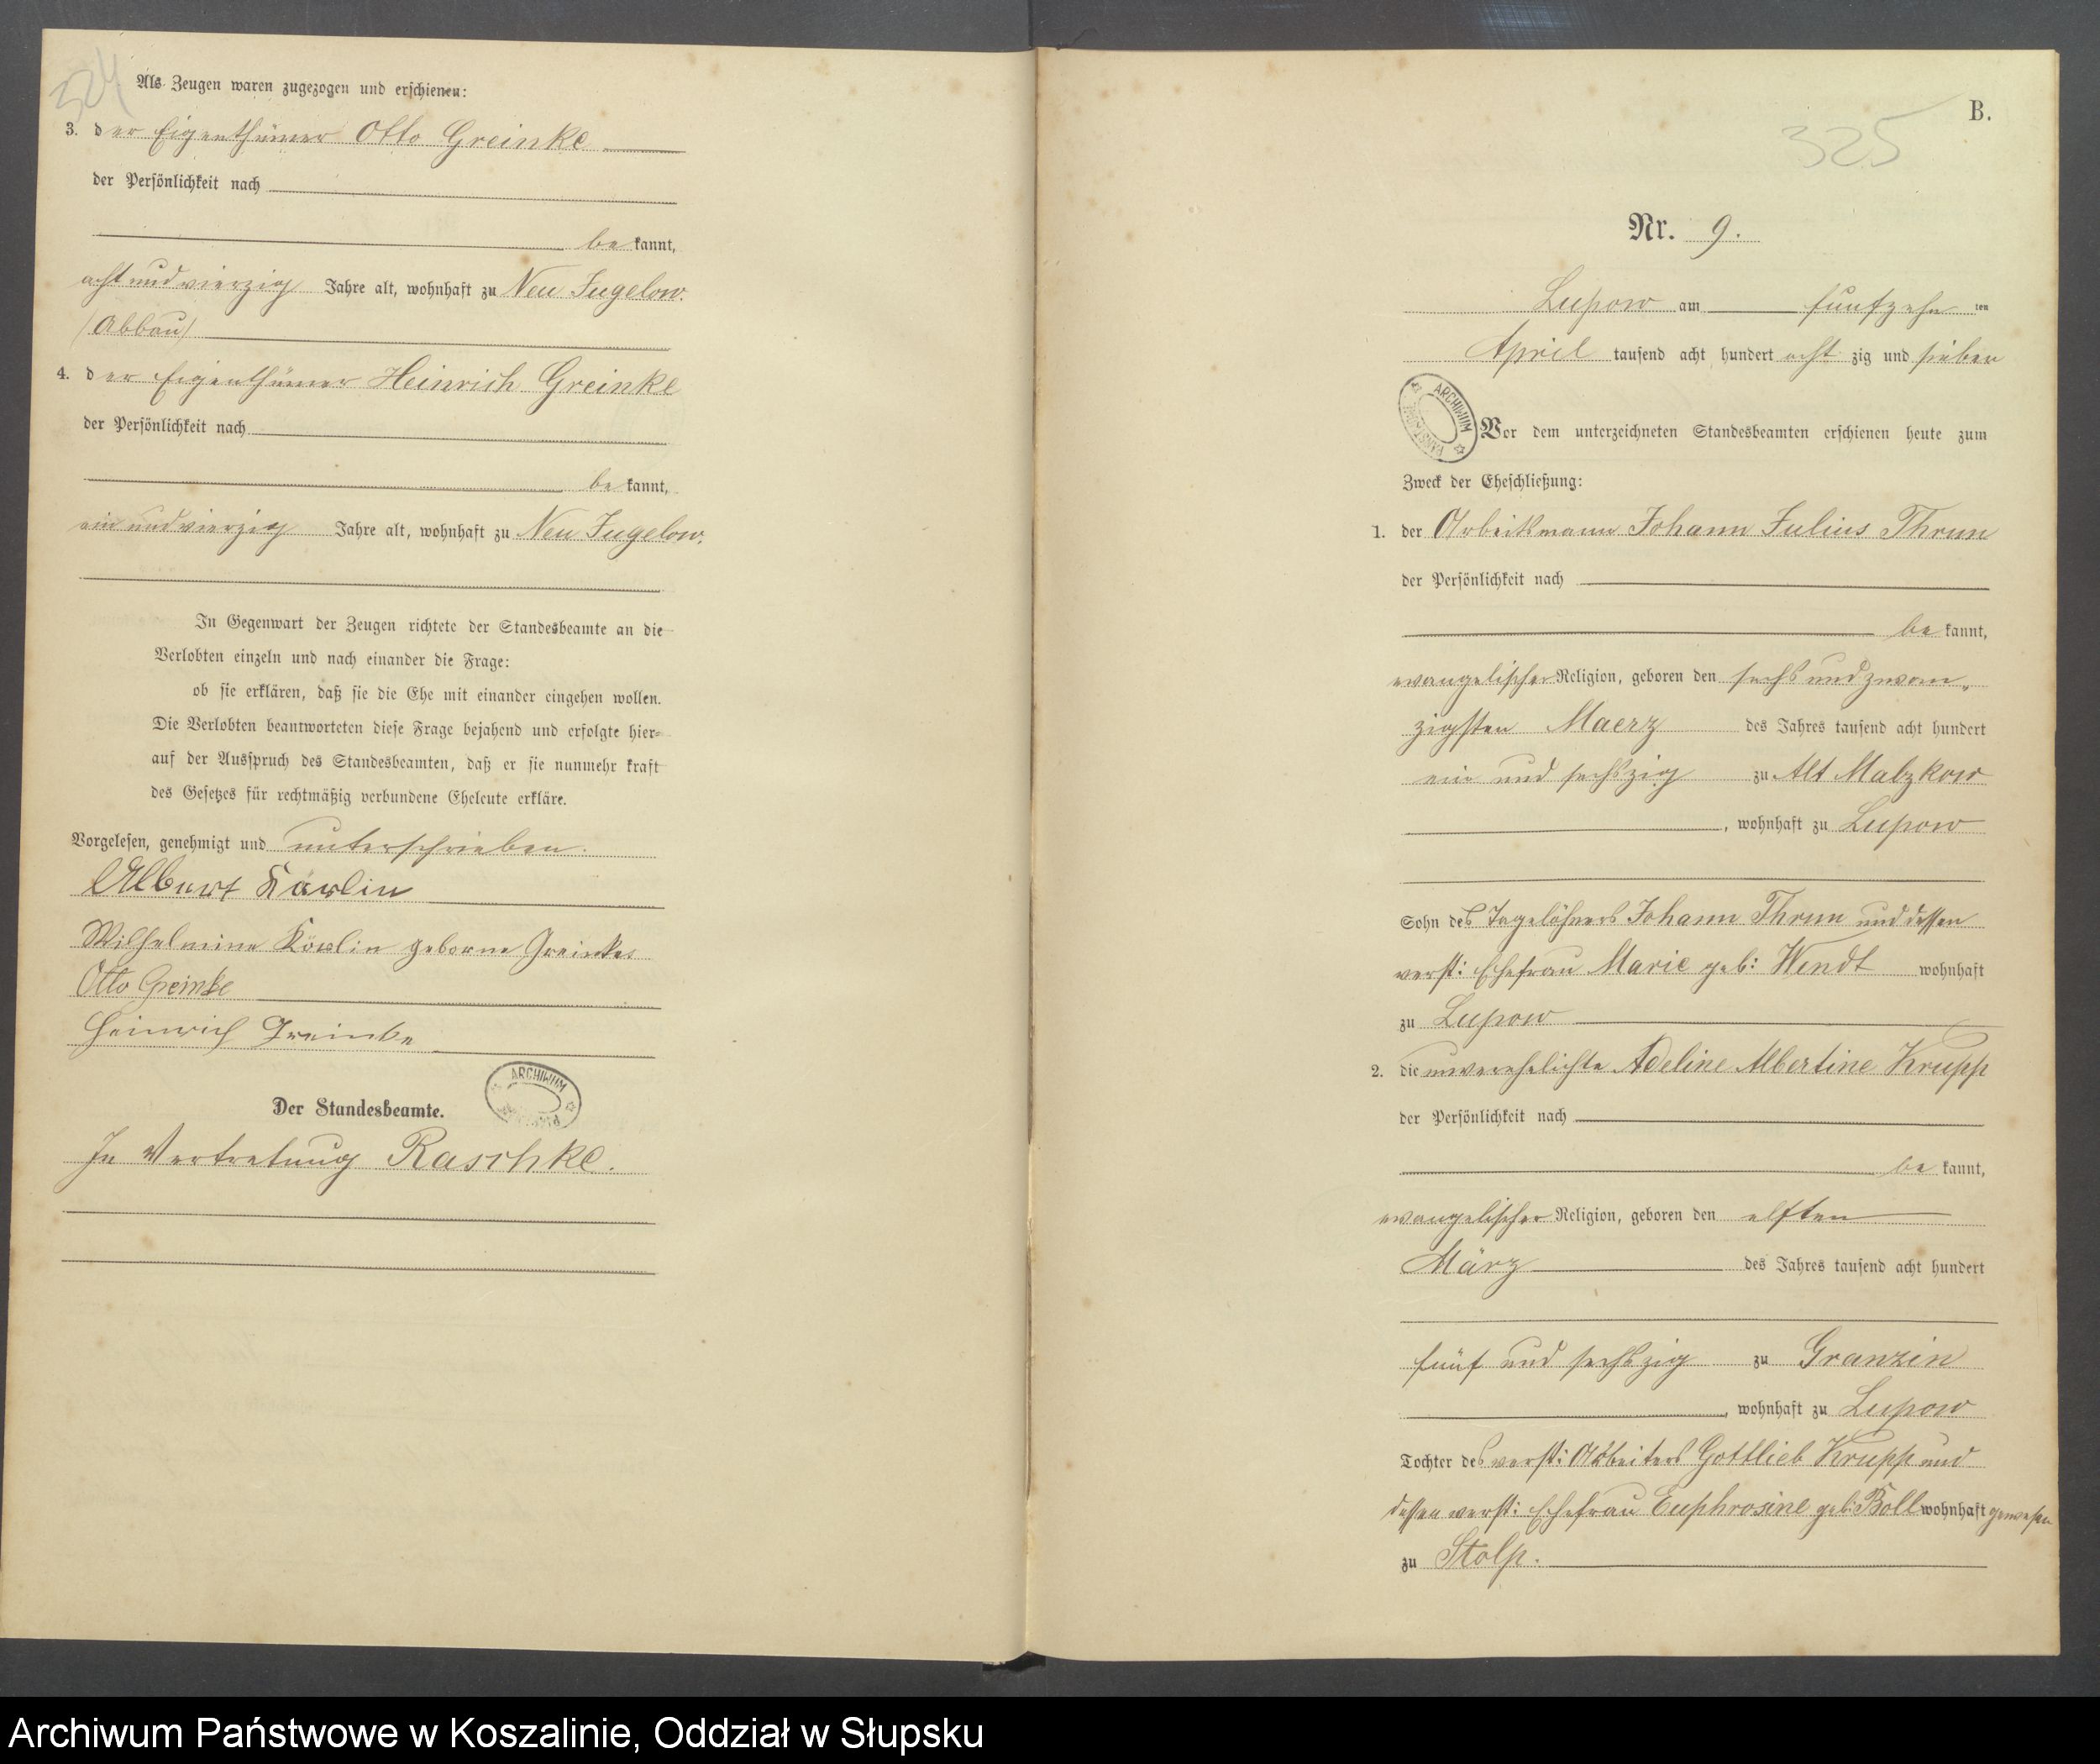 324
Als Zeugen waren zugezogen und erschienen:
3. der Eigenthümer Otto Greinke
der Persönlichkeit nach
be kannt,
acht und vierzig Jahre alt, wohnhaft zu Neu Jugelow.
(Abbau)
4. der Eigenthümer Heinrich Greinke
der Persönlichkeit nach
be kannt,
ein und vierzig Jahre alt, wohnhaft zu Neu Jugelow.
In Gegenwart der Zeugen richtete der Standesbeamte an die
Verlobten einzeln und nach einander die Frage:
ob sie erklären, daß sie die Ehe mit einander eingehen wollen.
Die Verlobten beantworteten diese Frage bejahend und erfolgte hier-
auf der Ausspruch des Standesbeamten, daß er sie nunmehr kraft
des Gesetzes für rechtmäßig verbundene Eheleute erkläre.
Vorgelesen, genehmigt und unterschrieben.
Albert
Wilhelmine geborne Greinke
Otto Greinke
Heinrich Greinke
ARCHIWUM
Der Standesbeamte.
In Vertretung Raschke.
B.
325
Nr. 9.
Lupow am fünfzehn ten
April tausend acht hundert acht zig und sieben
ARCHIWUM
Vor dem unterzeichneten Standesbeamten erschienen heute zum
Zweck der Eheschließung:
1. der Arbeitsmann Johann Julius Thrun
der Persönlichkeit nach
be kannt,
evangelischer Religion, geboren den sechs und zwan-
zigsten Maerz des Jahres tausend acht hundert
ein und sechszig zu Alt Malzkow
, wohnhaft zu Lupow
Sohn des Tagelöhners Johann Thrun und dessen
verst: Ehefrau Marie geb: Wendt wohnhaft
zu Lupow
2. die unverehelichte Adeline Albertine Krupp
der Persönlichkeit nach
be kannt,
evangelischer Religion, geboren den elften
März des Jahres tausend acht hundert
fünf und sechszig zu Granzin
, wohnhaft zu Lupow
Tochter des verst: Arbeiters Gottlieb Krupp und
dessen verst: Ehefrau Euphrosine geb: Boll wohnhaft gewesen
zu Stolp.
Archiwum Państwowe w Koszalinie, Oddział w Słupsku